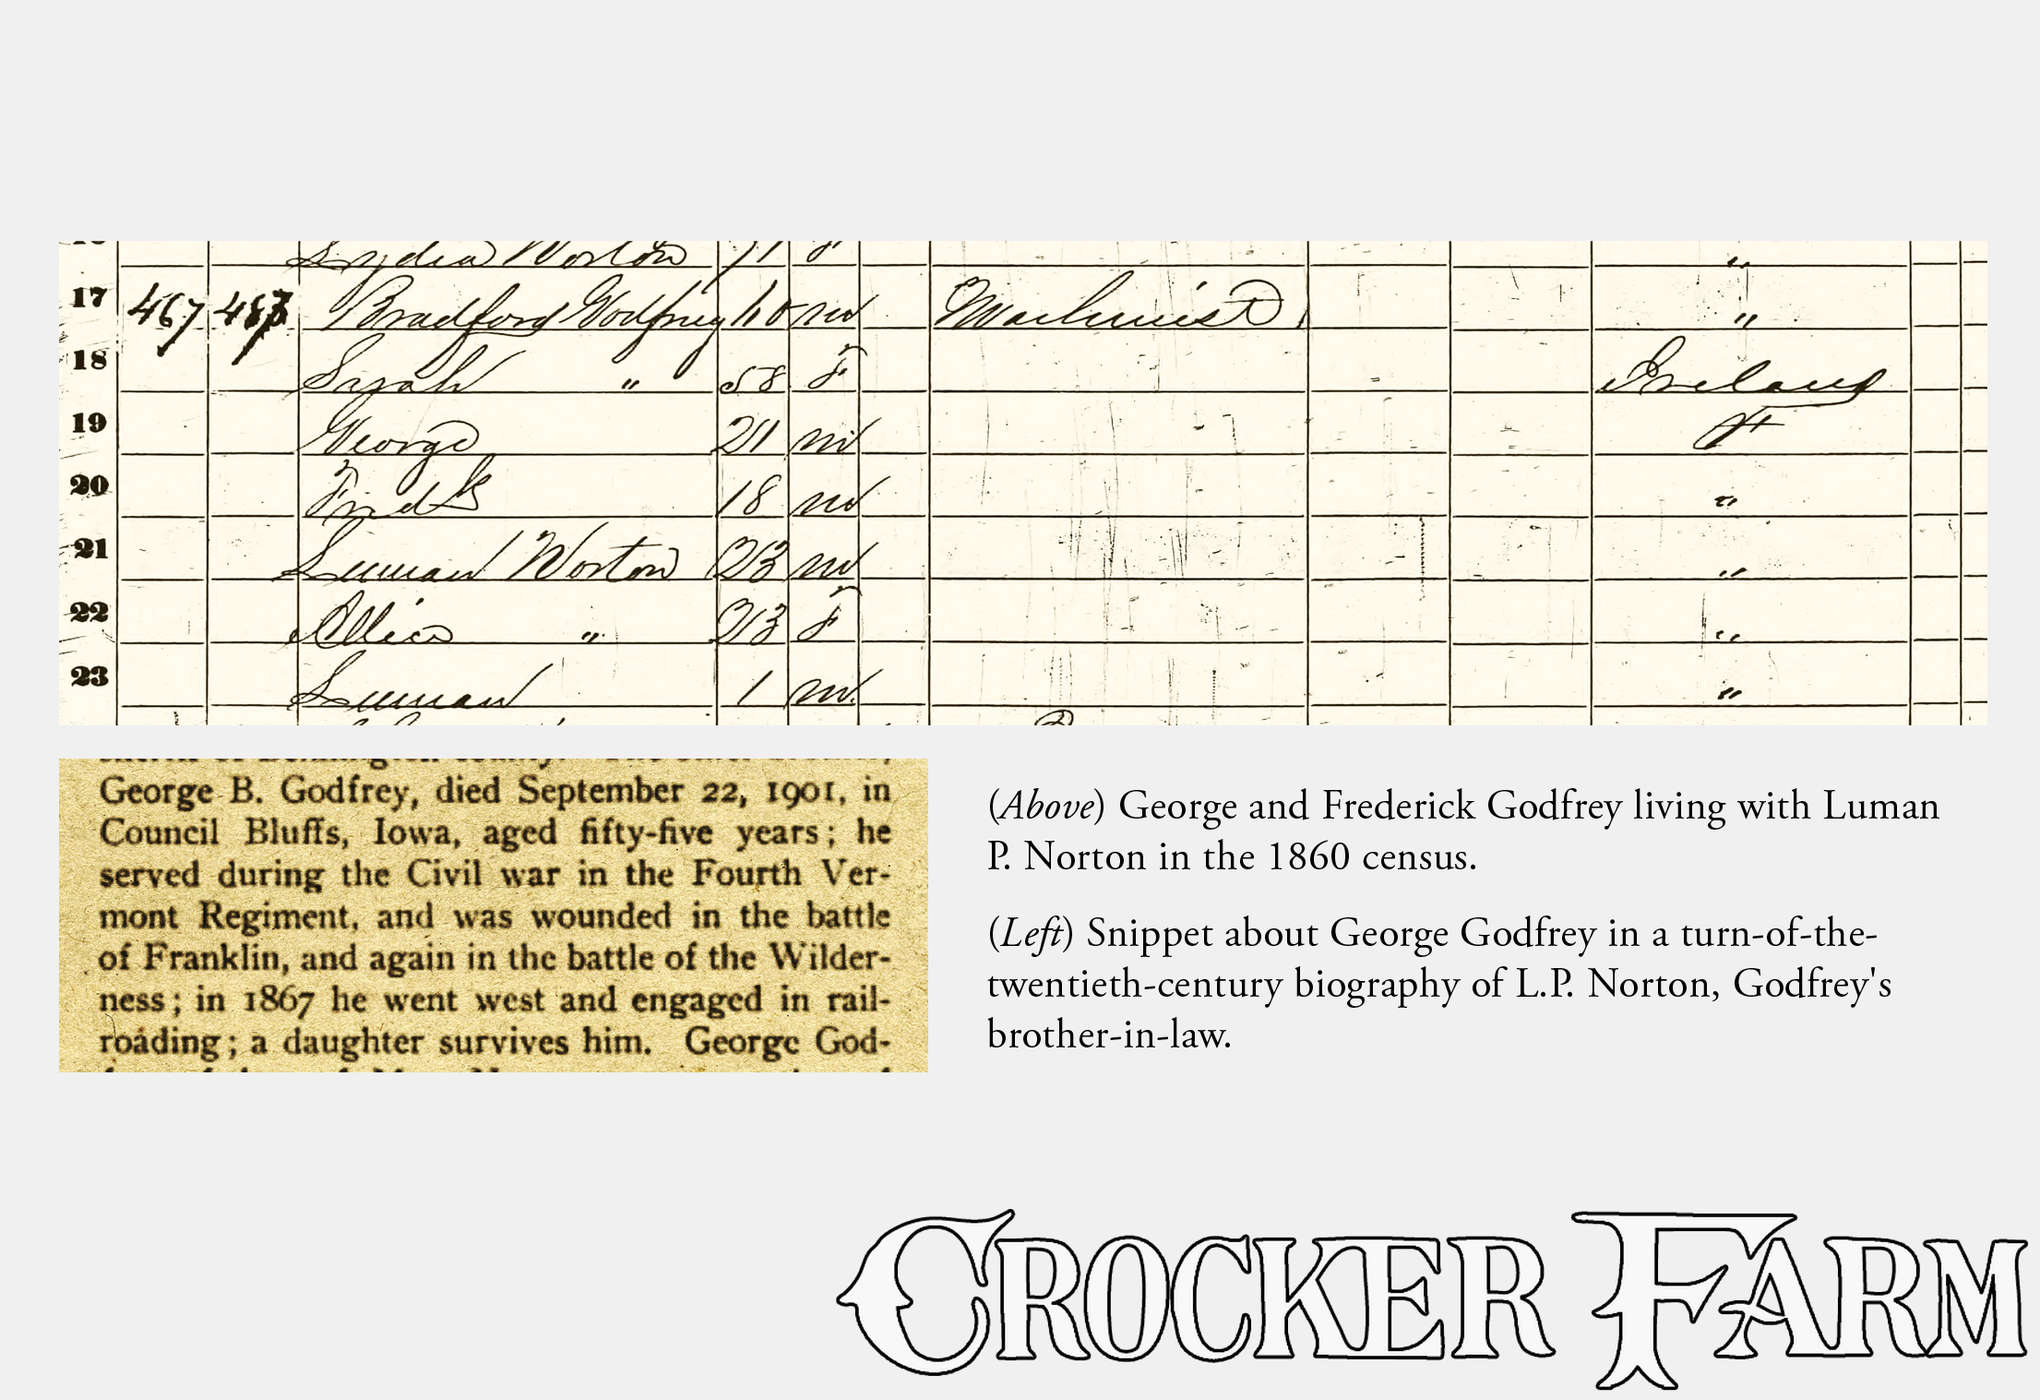 Lydia Norton 71 F "
17 467 Bradford Godfrey 60 m Machinist "
18 Sarah " 58 F Ireland
19 George 21 m
20 Fredk 18 m "
21 Luman Norton 23 m "
22 " 23 F "
23 Luman 1 m "
George B. Godfrey, died September 22, 1901, in
Council Bluffs, Iowa, aged fifty-five years; he
served during the Civil war in the Fourth Ver-
mont Regiment, and was wounded in the battle
of Franklin, and again in the battle of the Wilder-
ness; in 1867 he went west and engaged in rail-
roading; a daughter survives him. George God-
(Above) George and Frederick Godfrey living with Luman
P. Norton in the 1860 census.
(Left) Snippet about George Godfrey in a turn-of-the-
twentieth-century biography of L.P. Norton, Godfrey's
brother-in-law.
CROCKER FARM